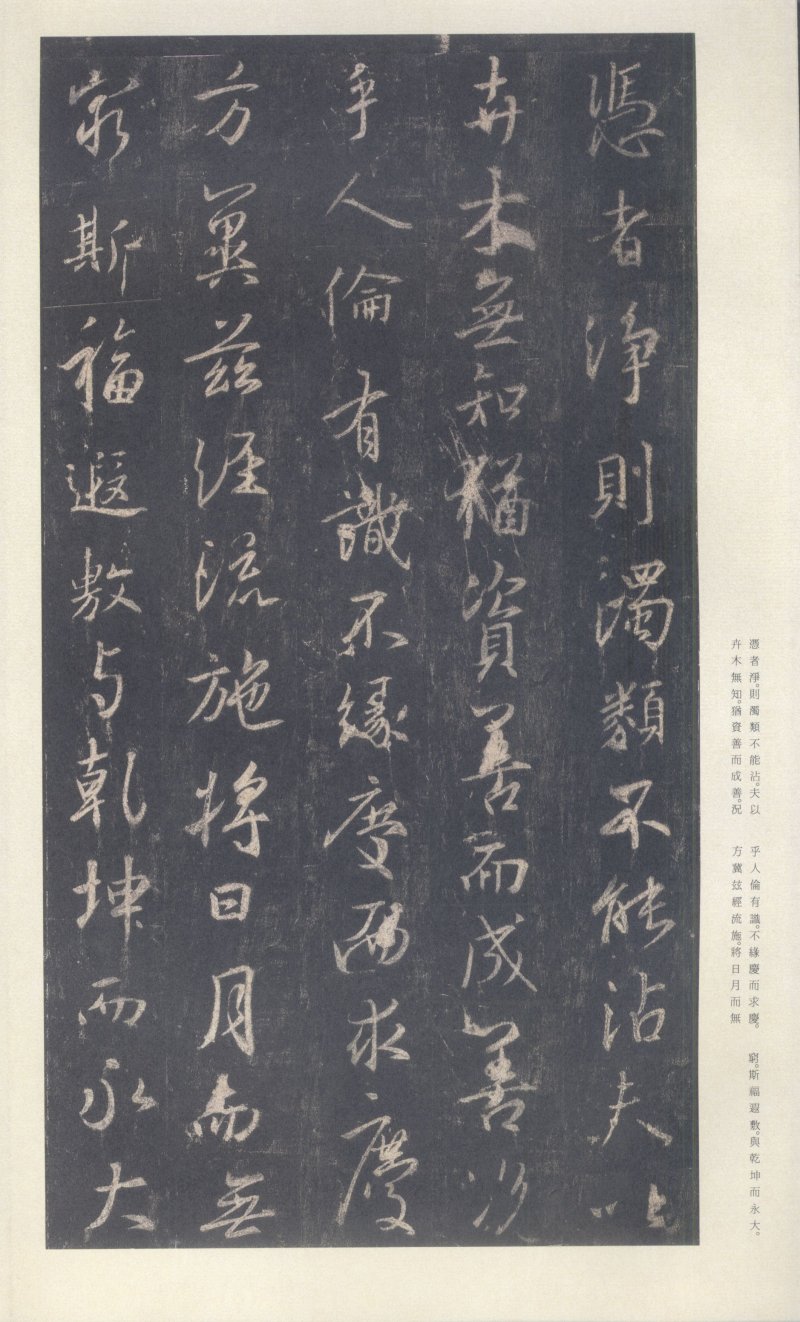 憑者淨則濁類不能沾夫以
卉木無知猶資善而成善況
乎人倫有識不緣慶而求慶
方冀茲經流施將日月而無
窮斯福遐敷与乾坤而永大
憑者淨。則濁類不能沾。夫以
卉木無知。猶資善而成善。況
乎人倫有識。不緣慶而求慶。
方冀兹經流施。將日月而無
窮。斯福遐敷。與乾坤而永大。